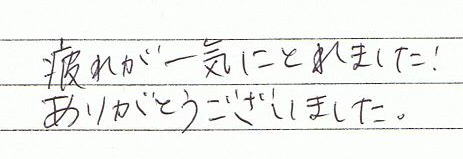 疲れが一気にとれました!
ありがとうございしました。